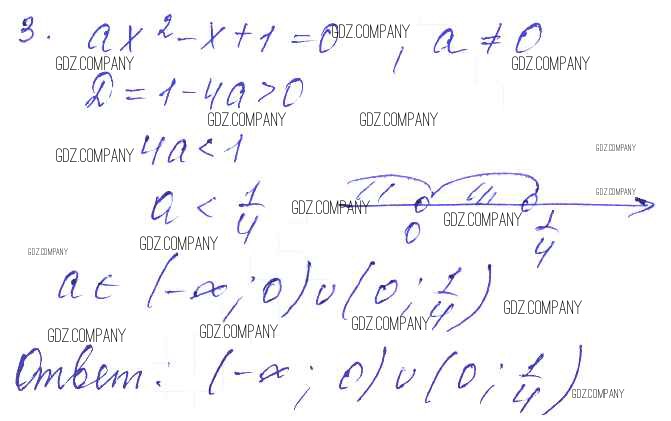 3. ax² - x + 1 = 0, a ≠ 0
GDZ.COMPANY
GDZ.COMPANY GDZ.COMPANY
D = 1 - 4a > 0
GDZ.COMPANY GDZ.COMPANY
4a < 1
GDZ.COMPANY GDZ.COMPANY
GDZ.COMPANY
a < 1/4
GDZ.COMPANY GDZ.COMPANY
0 1/4
GDZ.COMPANY GDZ.COMPANY
a ∈ (-∞; 0) ∪ (0; 1/4)
GDZ.COMPANY
GDZ.COMPANY GDZ.COMPANY GDZ.COMPANY
Ответ: (-∞; 0) ∪ (0; 1/4)
GDZ.COMPANY